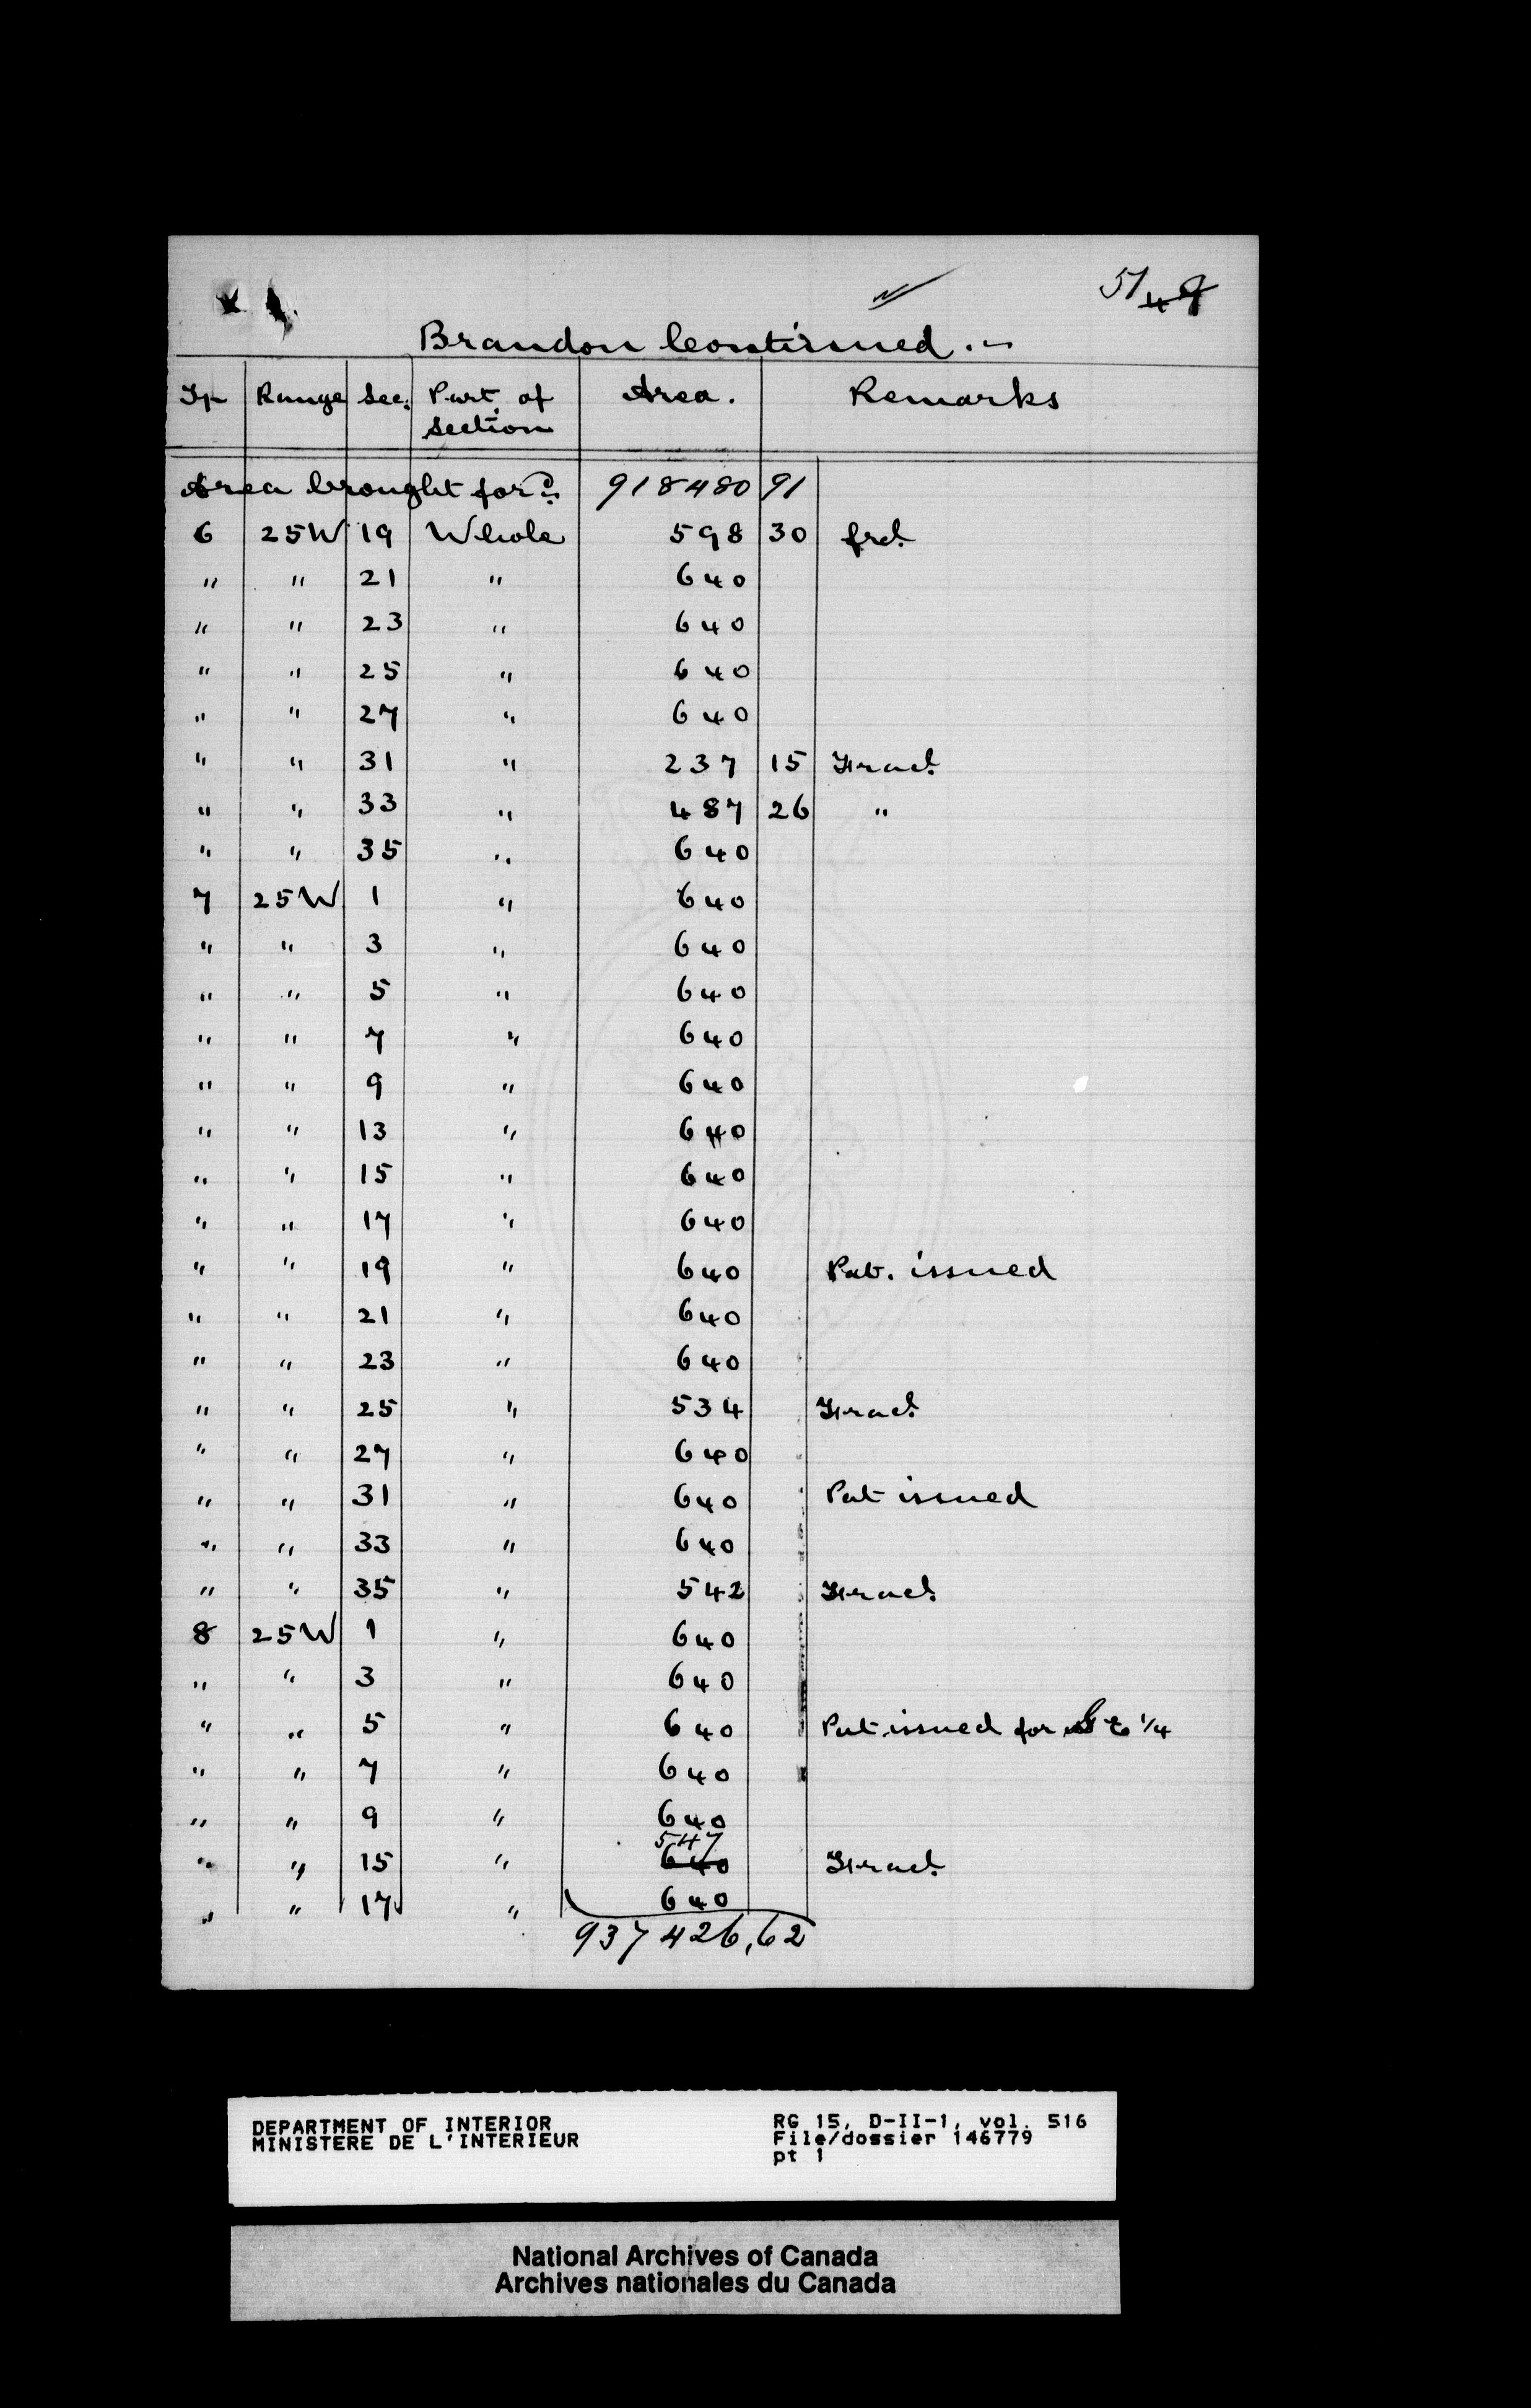 51 49
Brandon Continued.-
Tp Range Sec. Part of section Area. Remarks
Area brought ford. 918480 91
6 25W 19 Whole 598 30 frd.
" " 21 " 640
" " 23 " 640
" " 25 " 640
" " 27 " 640
" " 31 " 237 15 Fract.
" " 33 " 487 26 "
" " 35 " 640
7 25W 1 " 640
" " 3 " 640
" " 5 " 640
" " 7 " 640
" " 9 " 640
" " 13 " 640
" " 15 " 640
" " 17 " 640
" " 19 " 640 Pat. issued
" " 21 " 640
" " 23 " 640
" " 25 " 534 Fract.
" " 27 " 640
" " 31 " 640 Pat issued
" " 33 " 640
" " 35 " 542 Fract.
8 25W 1 " 640
" " 3 " 640
" " 5 " 640 Pat. issued for S E 1/4
" " 7 " 640
" " 9 " 640
547
" " 15 " 640 Fract.
" " 17 " 640
937426.62
DEPARTMENT OF INTERIOR
MINISTERE DE L'INTERIEUR
RG 15, D-II-1, vol. 516
File/dossier 146779
pt 1
National Archives of Canada
Archives nationales du Canada